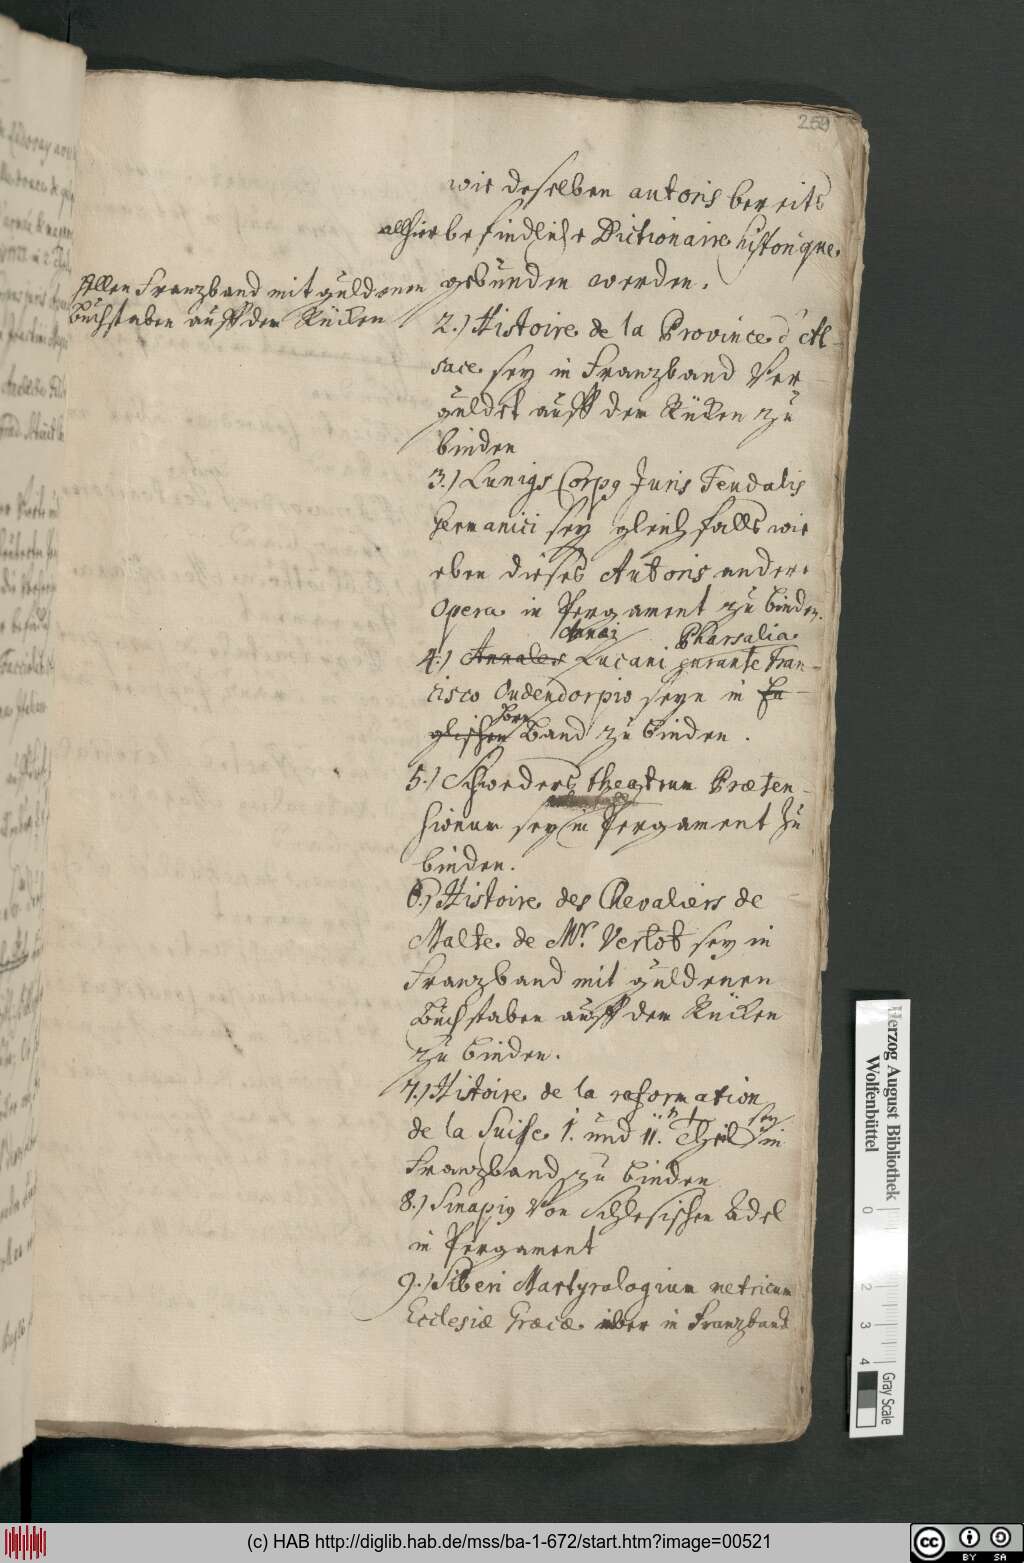 259
wie deselben autoris bereits
allhier befindliche Dictionaire historique
gebunden werden.
Allen Franzband mit guldenen
Buchstaben auff dem Rücken
2.) Histoire de la Province d'Al-
sace sey in Franzband Ver
guldet auff dem Rücken zu
binden
3.) Lunigs Corpg Juris Feudalis
Germanici sey gleichfalls wie
eben dieses Autoris andere
Opera in Pergament zu binden.
Annaei Pharsalia
4.) Annales Lucani curante Fran-
cisco Oudendorpio seyn in En-
glischen Band zu binden.
5.) Schweders theatrum Præten-
sionum sey in Pergament zu
binden.
6.) Histoire des Chevaliers de
Malte de Mr. Vertot sey in
Franzband mit guldenen
Buchstaben auff dem Rücken
zu binden.
7.) Histoire de la reformation
de la Suisse I. und II. Theil sey in
Franzband zu binden
8.) Sinapig Von Schlesischen Adel
in Pergament
9.) Siberi Martyrologium metricum
Ecclesiæ Græcæ in Franzband
Herzog August Bibliothek
Wolfenbüttel
0
2
3
4
Gray Scale
(c) HAB http://diglib.hab.de/mss/ba-1-672/start.htm?image=00521
cc BY SA